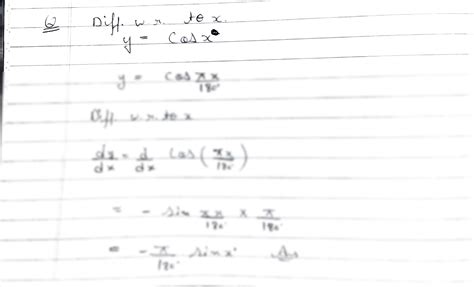 Q Diff. w. r. to x.
y = cos x°
y = cos πx/180°
Diff. w. r. to x
dy/dx = d/dx cos(πx/180°)
= - sin πx/180° × π/180°
= - π/180° sin x° Ans